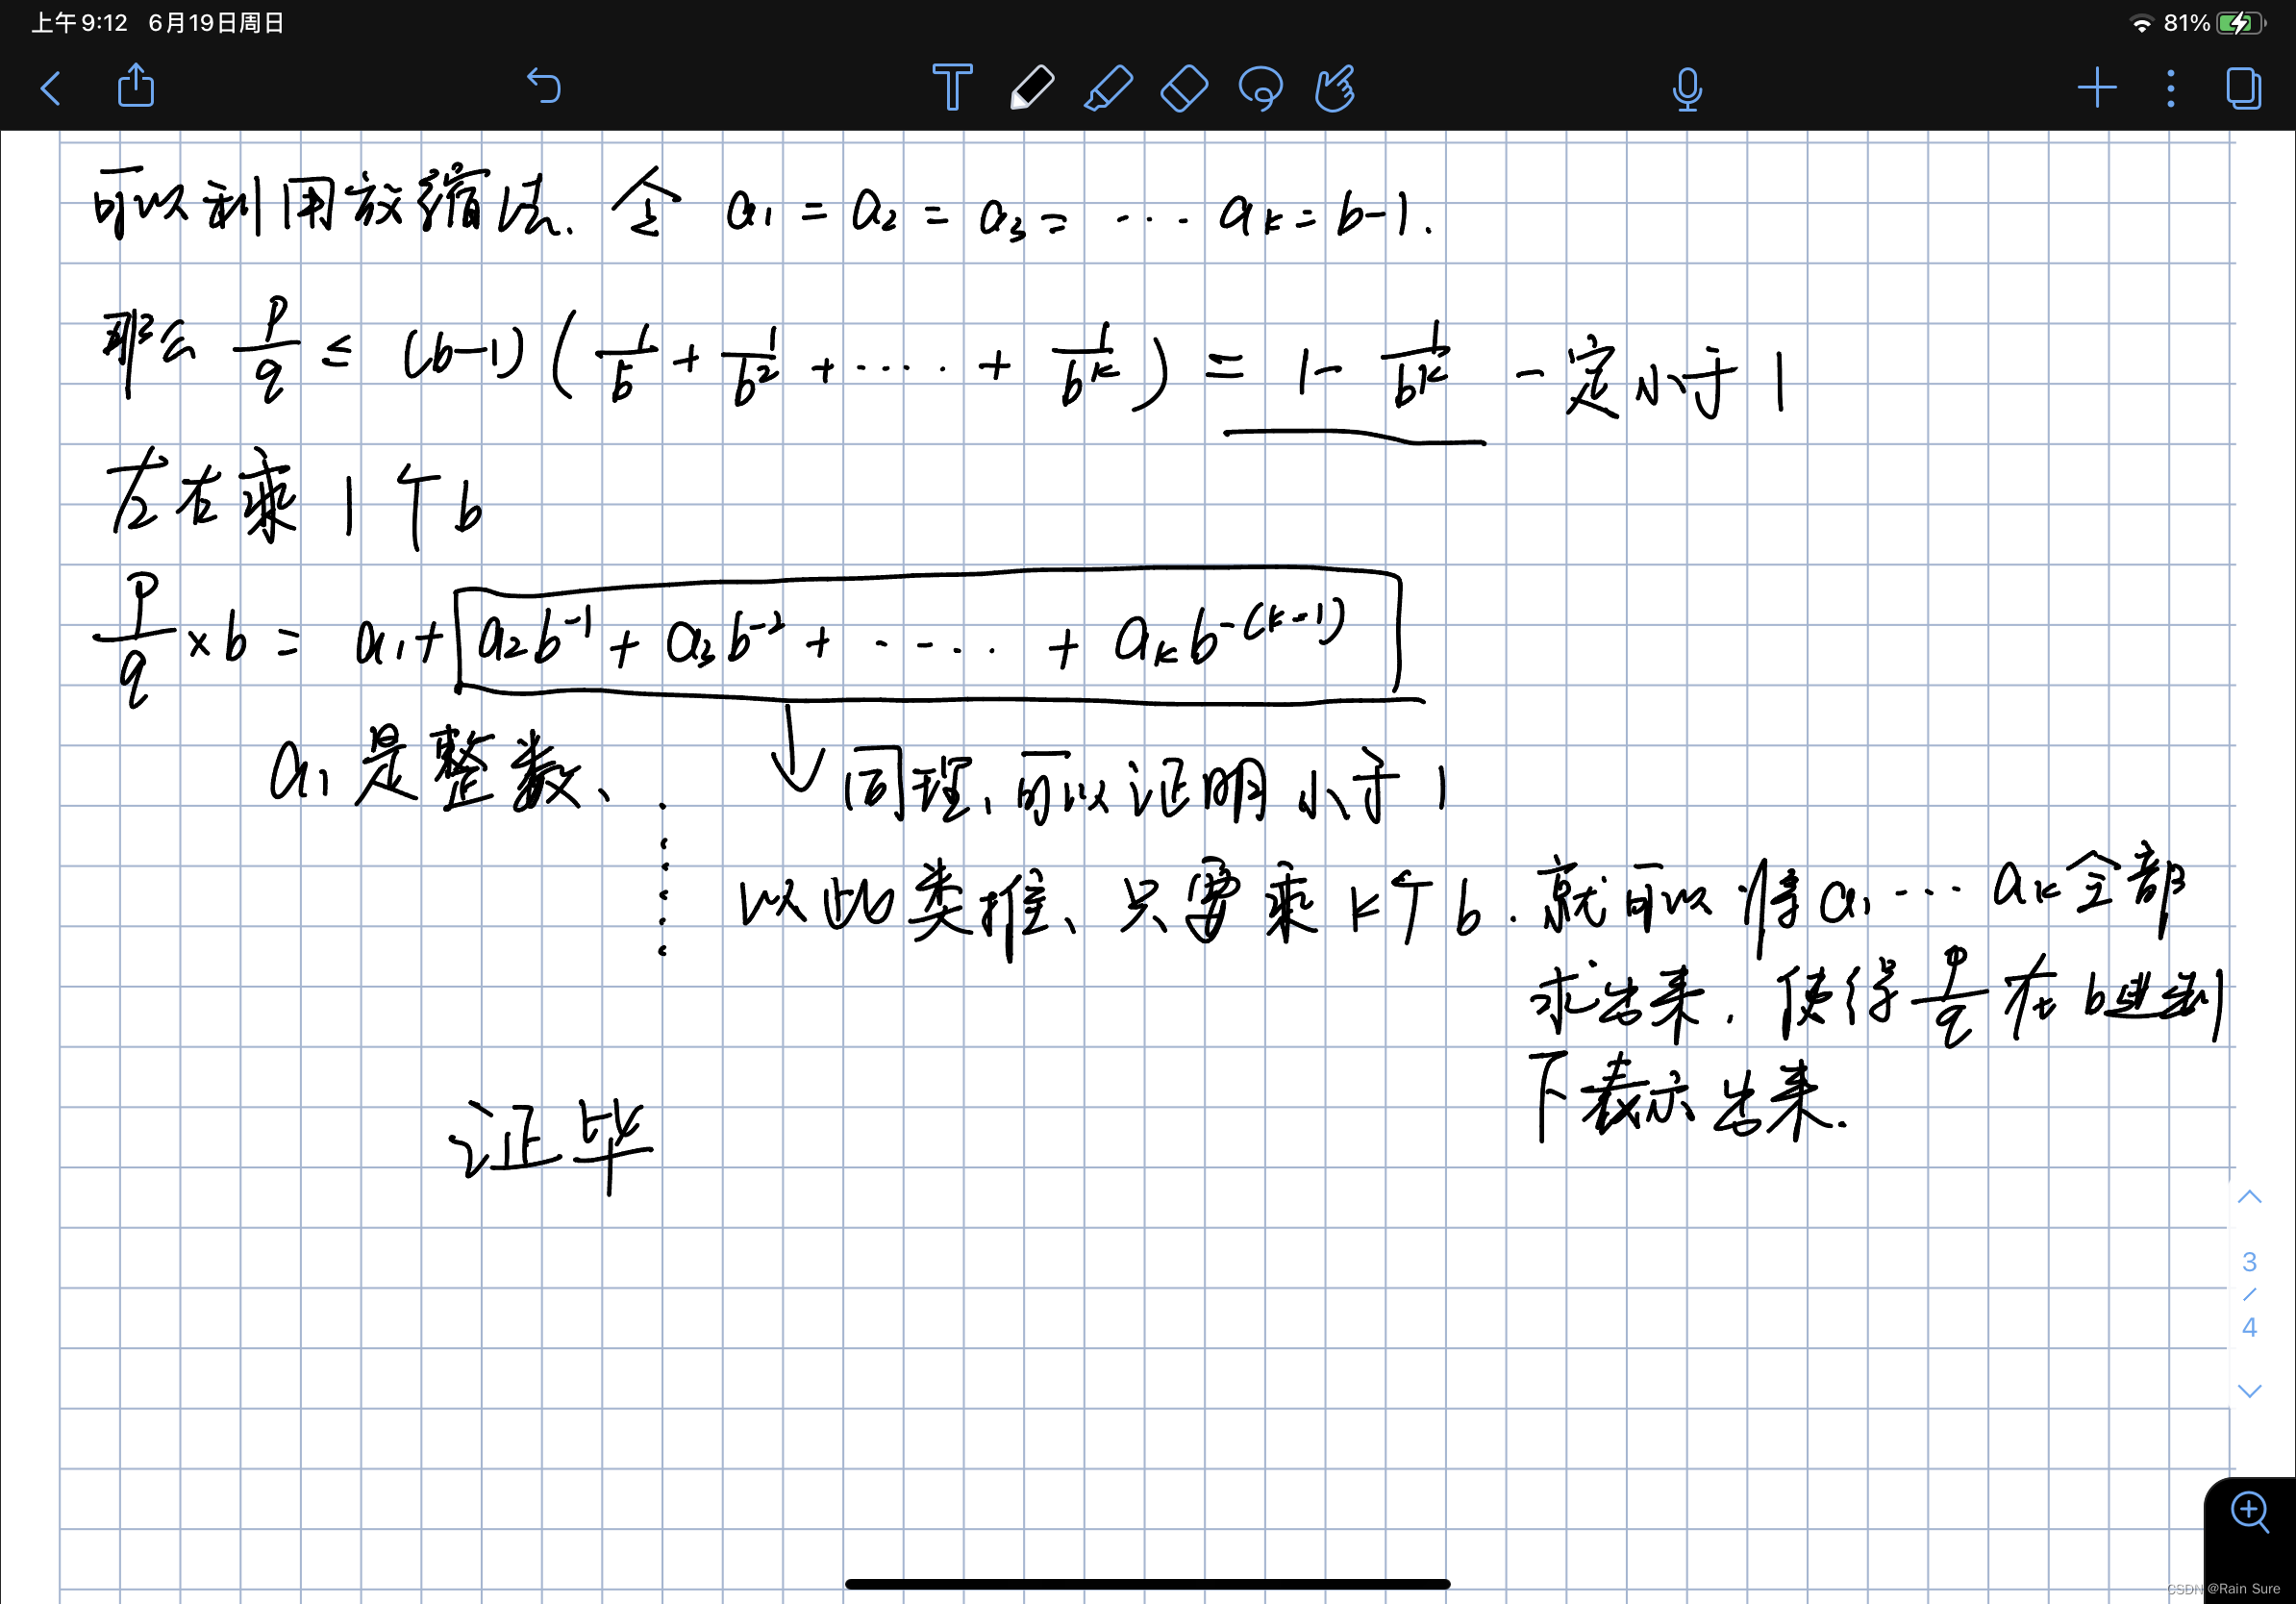 上午9:12 6月19日周日
81%
可以利用放缩法. 令 a₁ = a₂ = a₃ = ... aₖ = b-1.
那么 p/q ≤ (b-1) ( 1/b + 1/b² + ..... + 1/bᵏ ) = 1 - 1/bᵏ 一定小于1
左右乘1个b
p/q × b = a₁ + a₂b⁻¹ + a₃b⁻² + ..... + aₖb⁻⁽ᵏ⁻¹⁾
a₁是整数、 同理、可以证明小于1
以此类推、只要乘k个b. 就可以将a₁ ... aₖ全部
求出来. 使得 p/q 在b进制
下表示出来.
证毕
3
/
4
CSDN @Rain Sure